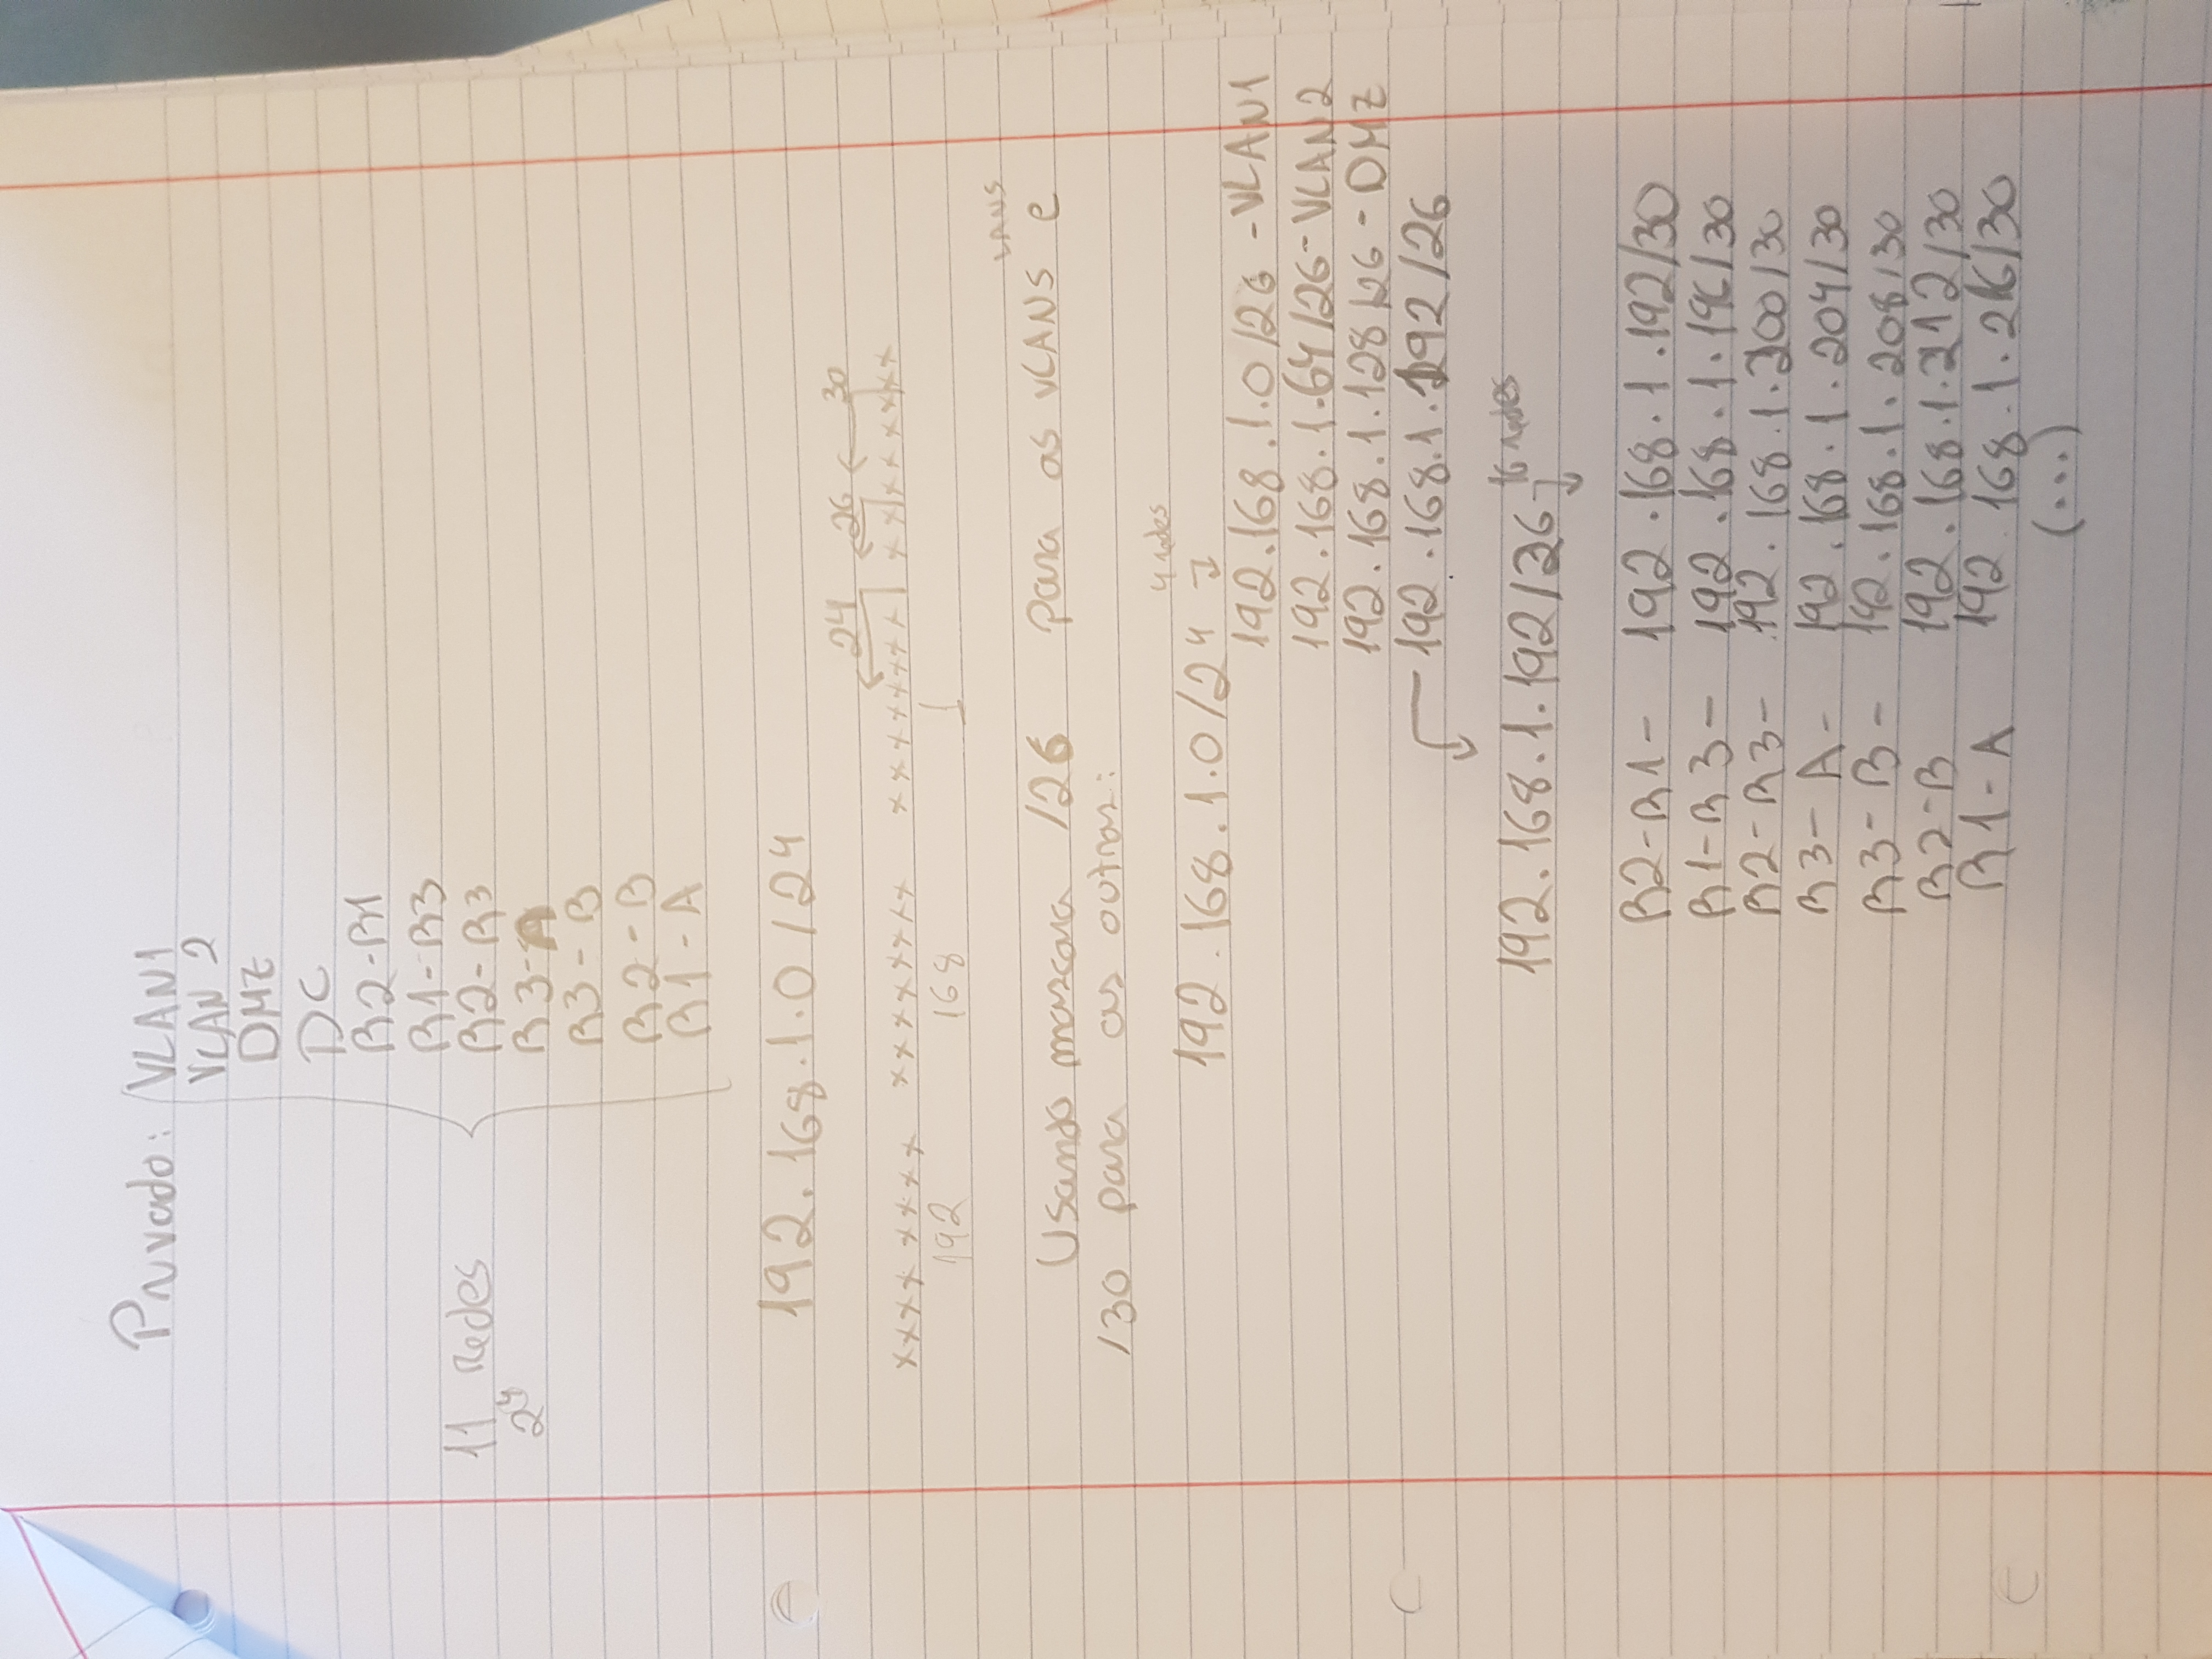 Privado: VLAN1
VLAN 2
DMZ
DC
R2-R1
R1-R3
11 Redes
R2-R3
2⁴
R3-A
R3-B
R2-B
R1-A
192.168.1.0/24
24 26 30
xxxx xxxx xxxxxxxx xxxxxxxx xxxxxxxx
192 168 1
LANS
Usando mascara /26 para as VLANS e
/30 para as outras:
4 redes
192.168.1.0/24
192.168.1.0/26 - VLAN1
192.168.1.64/26 - VLAN2
192.168.1.128/26 - DMZ
192.168.1.192/26
192.168.1.192/26 16 redes
R2-R1- 192.168.1.192/30
R1-R3- 192.168.1.196/30
R2-R3- 192.168.1.200/30
R3-A- 192.168.1.204/30
R3-B- 192.168.1.208/30
R2-B 192.168.1.212/30
R1-A 192.168.1.216/30
(...)